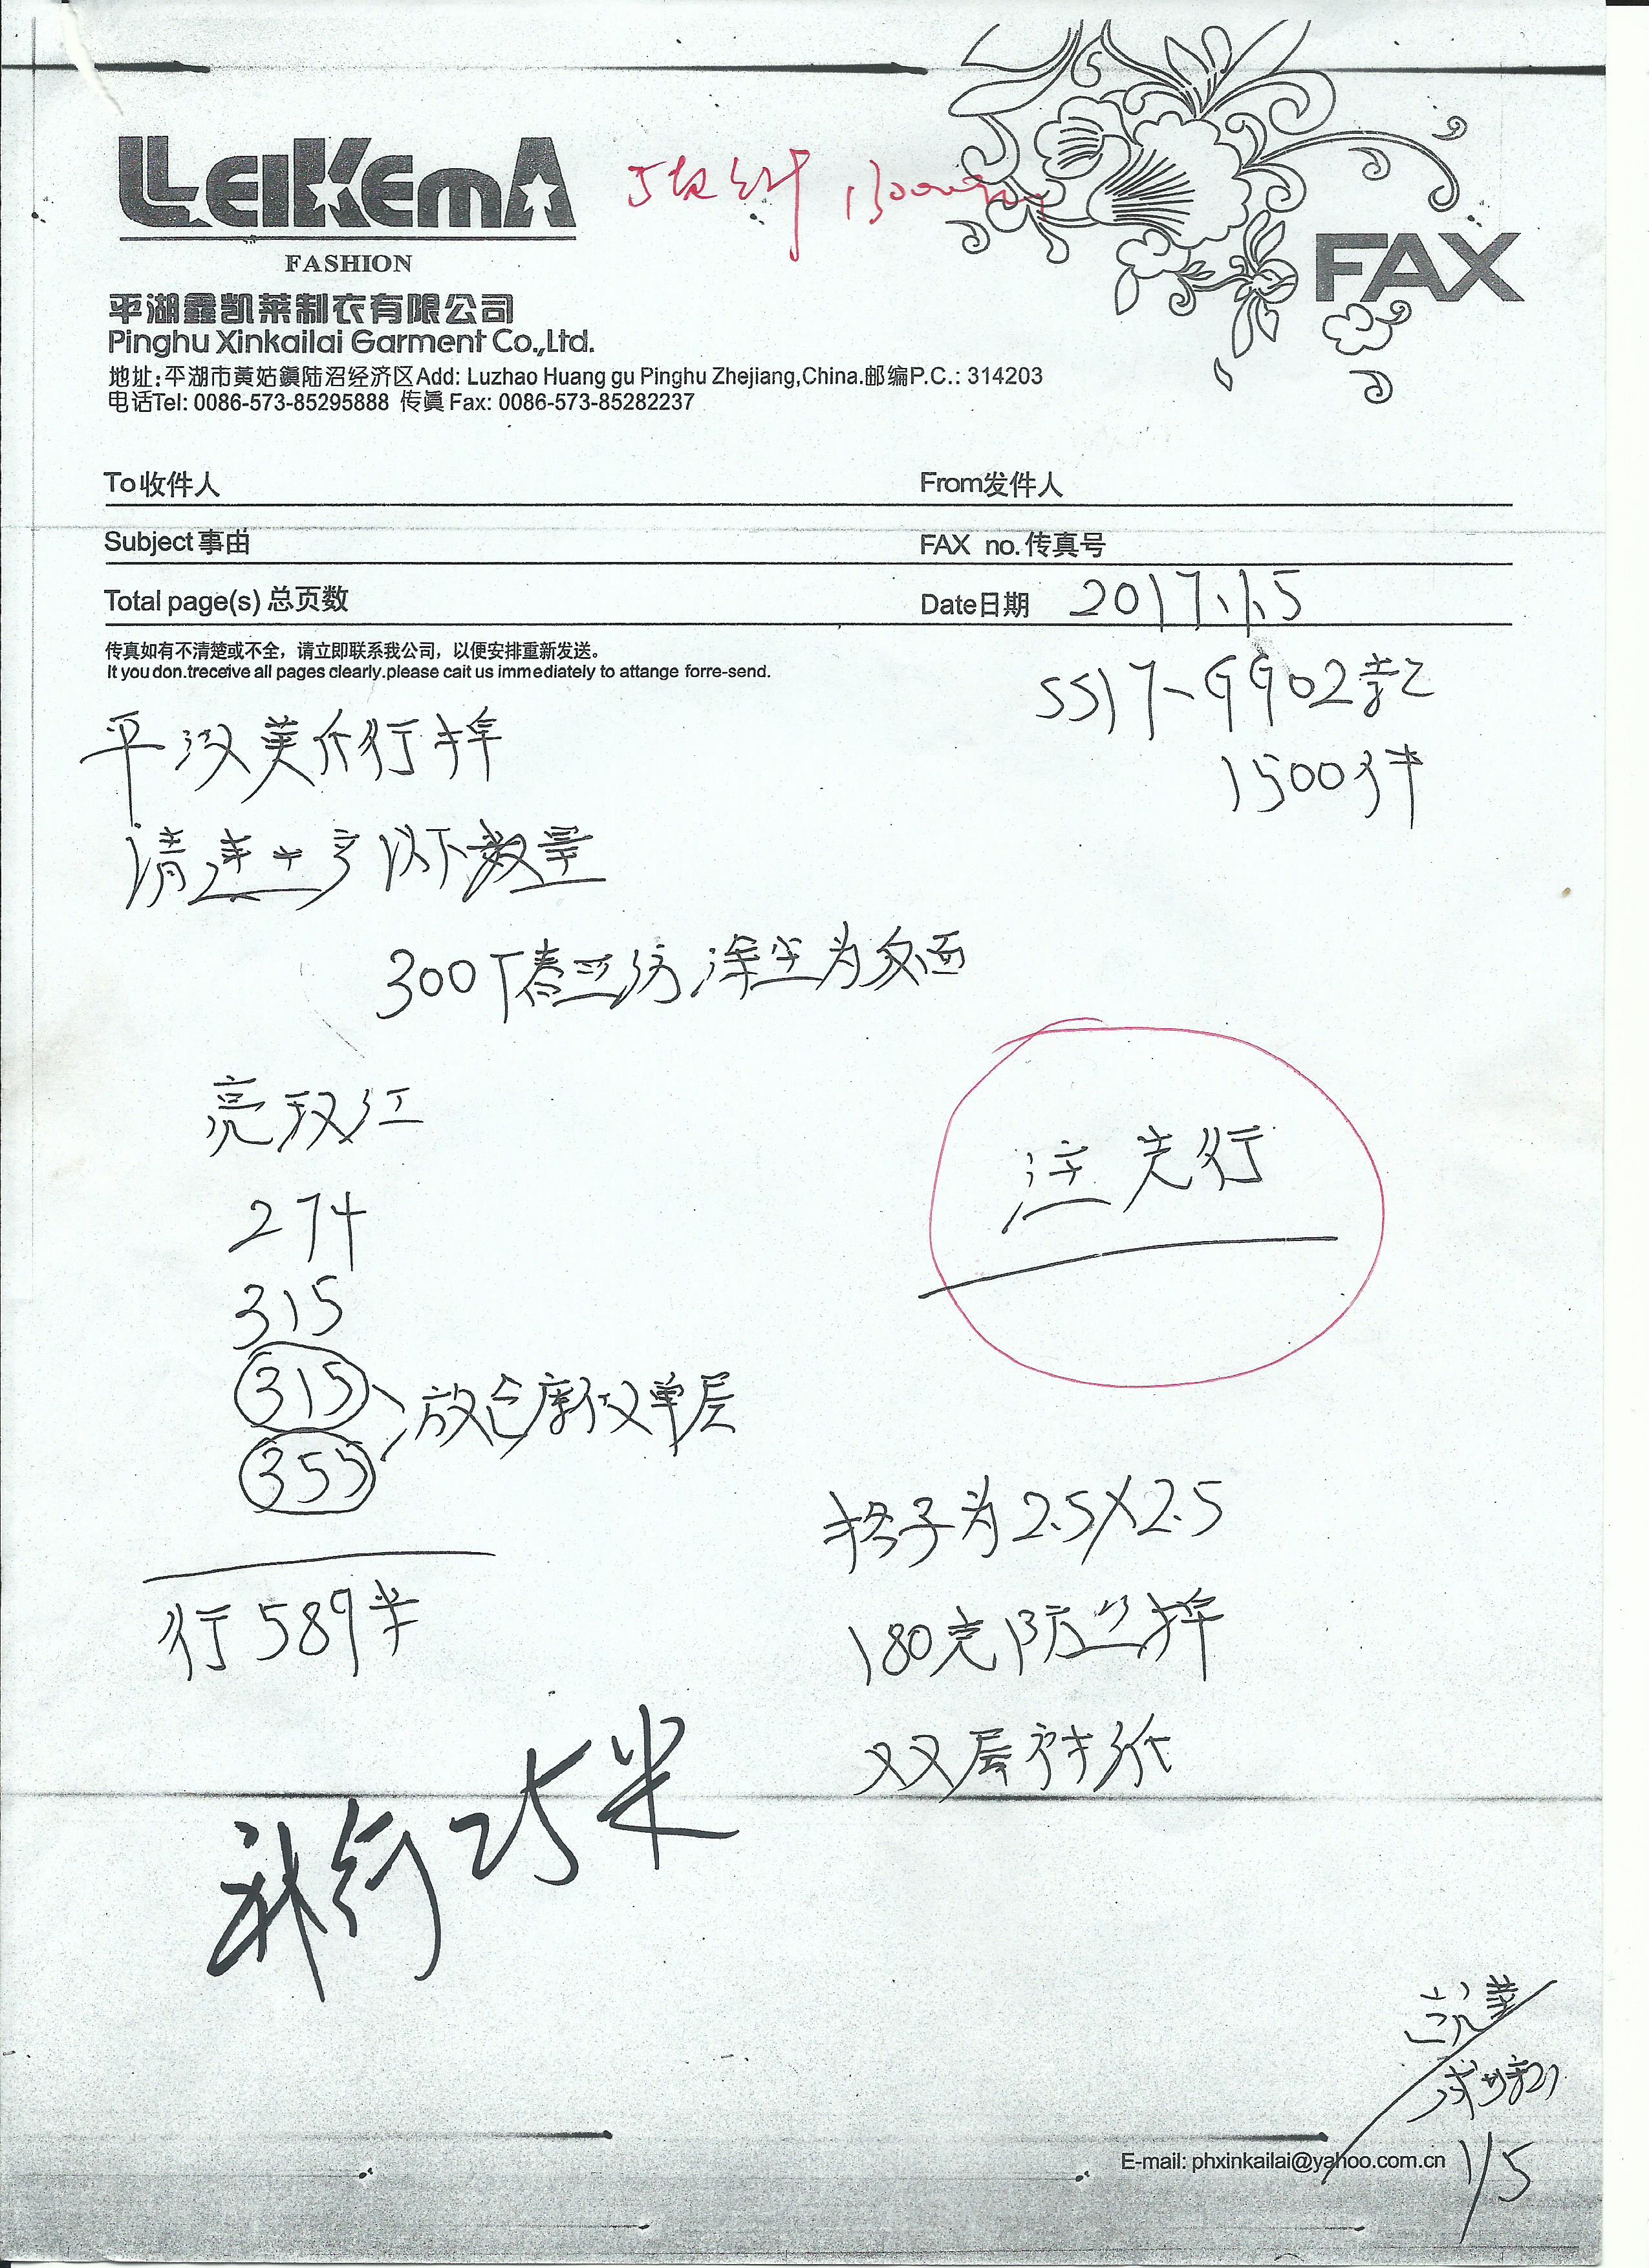 LEIKEMA
FASHION
FAX
平湖鑫凯莱制衣有限公司
Pinghu Xinkailai Garment Co.,Ltd.
地址:平湖市黄姑鎮陆沼经济区Add: Luzhao Huang gu Pinghu Zhejiang,China.邮编P.C.: 314203
电话Tel: 0086-573-85295888 传真 Fax: 0086-573-85282237
To收件人 From发件人
Subject 事由 FAX no.传真号
Total page(s) 总页数 Date日期 2017.1.5
传真如有不清楚或不全，请立即联系我公司，以便安排重新发送。
It you don.treceive all pages clearly.please cait us immediately to attange forre-send.
SS17-9902款
1500件
平汉美 行棉
请 以下数量
300T春亚纺 涂 为反面
亮玫红
274
315
注 先行
315
放仓库仅单层
355
格子为2.5X2.5
行589米
180克防 棉
双层衬纸
补行25米
凯莱
E-mail: phxinkailai@yahoo.com.cn
1/5